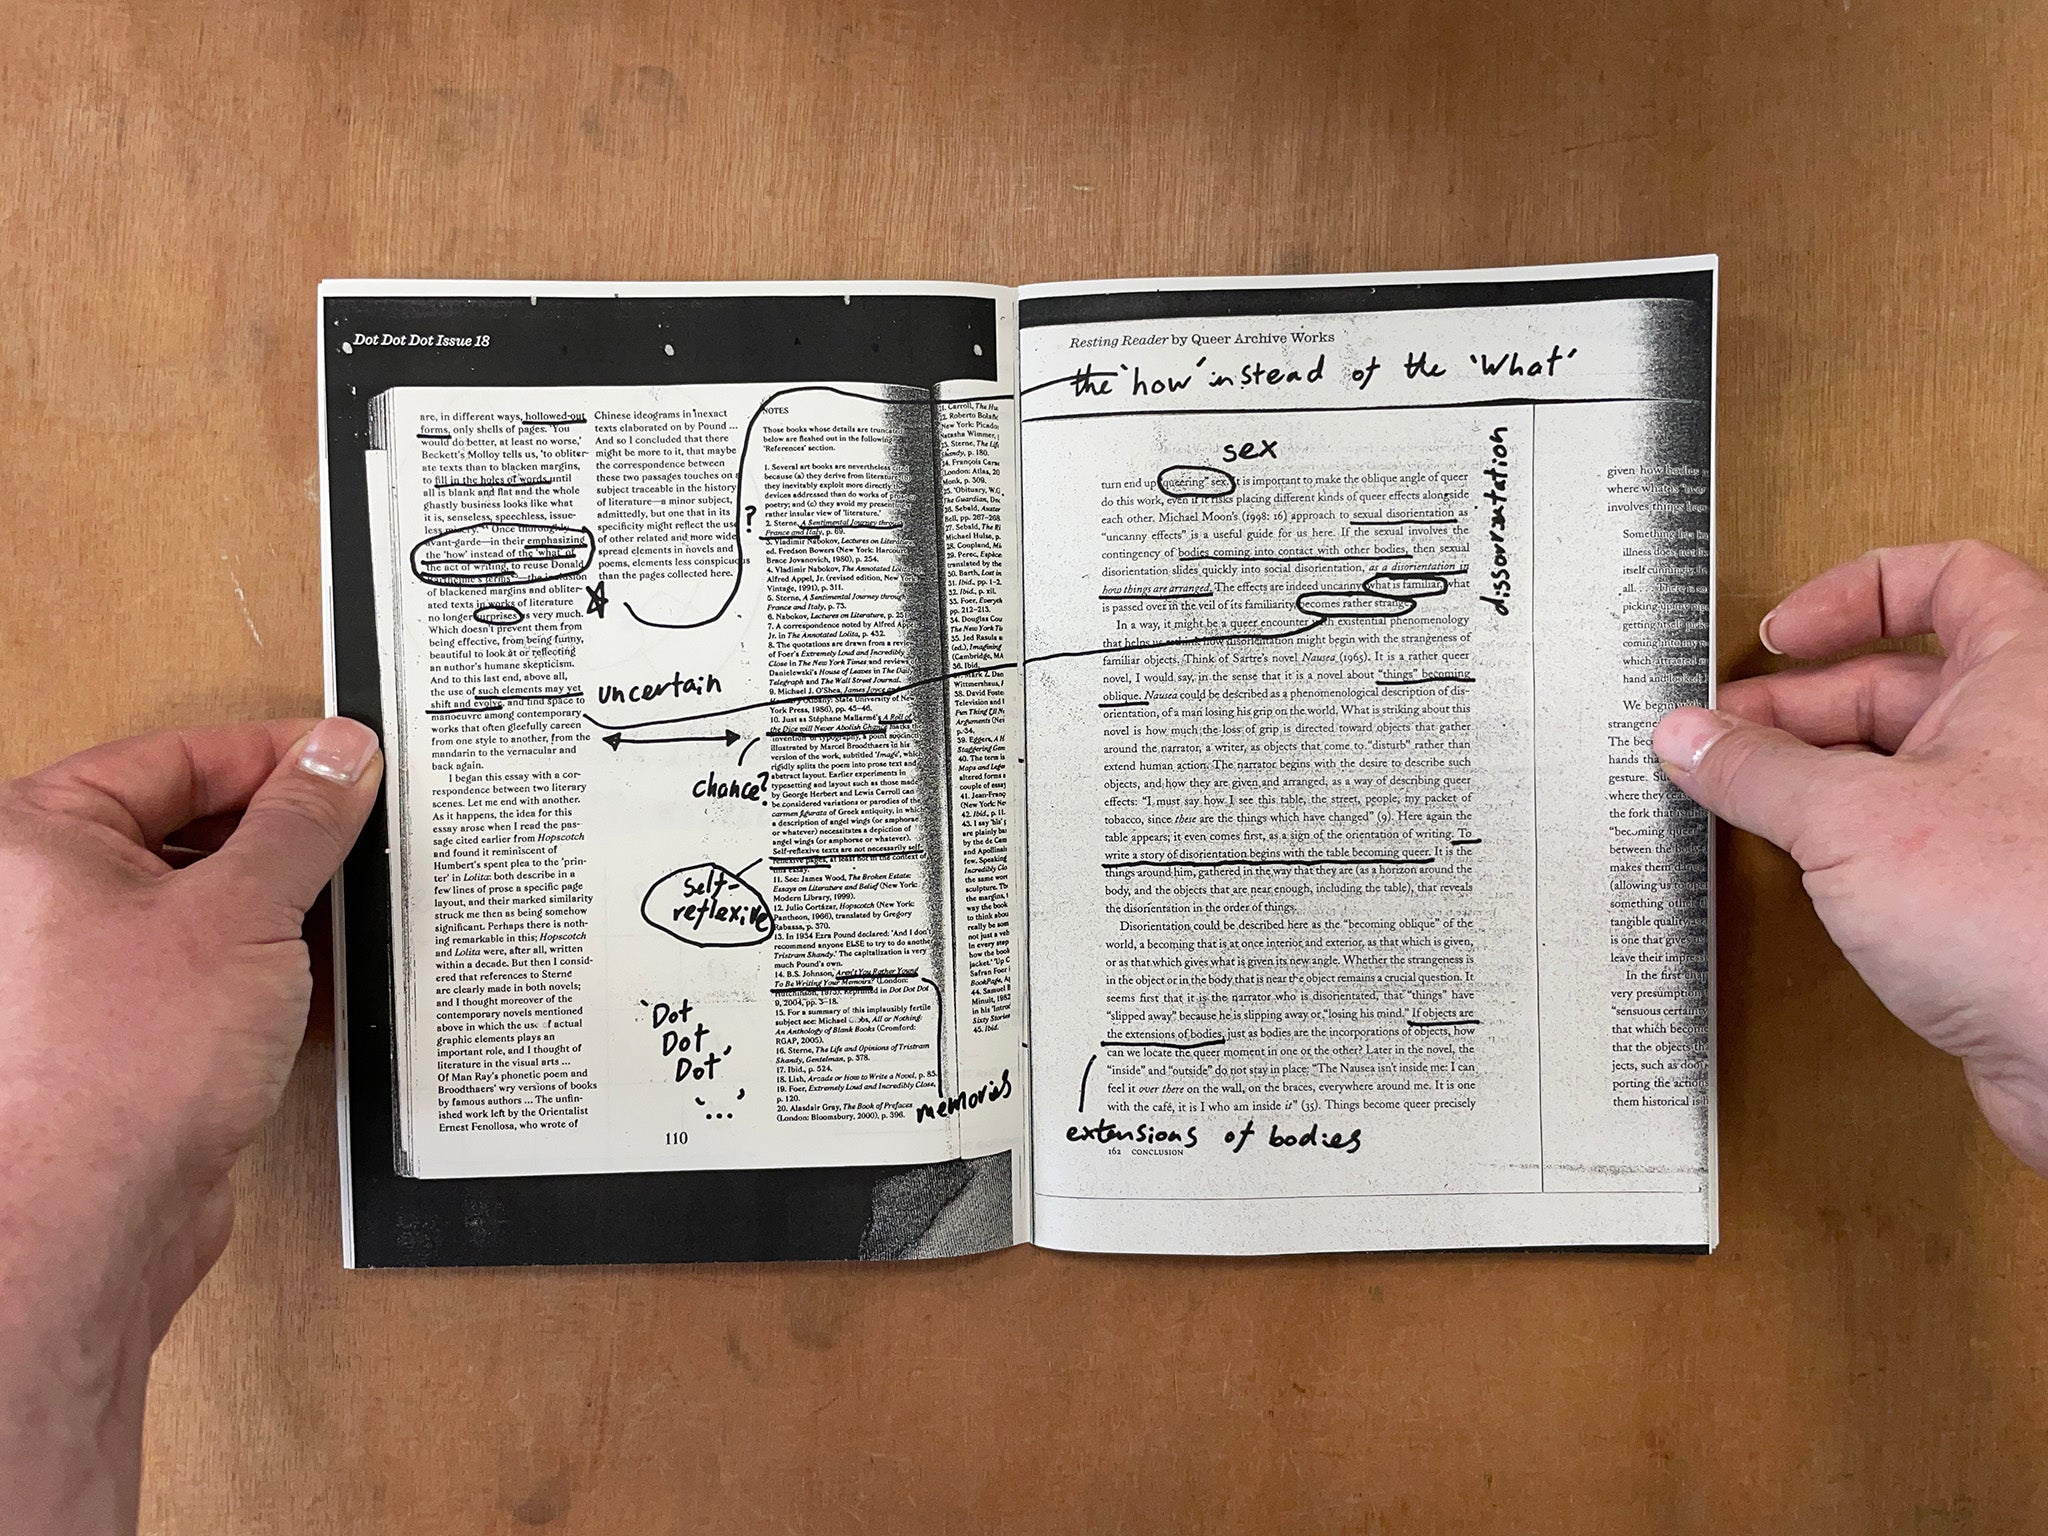 Dot Dot Dot Issue 18
are, in different ways, hollowed-out
forms, only shells of pages. 'You
would do better, at least no worse,'
Beckett's Molloy tells us, 'to obliter-
ate texts than to blacken margins,
to fill in the holes of words until
all is blank and flat and the whole
ghastly business looks like what
it is, senseless, speechless, issue-
less misery.' Once thoroughly
avant-garde—in their emphasizing
the 'how' instead of the 'what' of
the act of writing, to reuse Donald
Barthelme's terms—the inclusion
of blackened margins and obliter-
ated texts in works of literature
no longer surprises us very much.
Which doesn't prevent them from
being effective, from being funny,
beautiful to look at or reflecting
an author's humane skepticism.
And to this last end, above all,
the use of such elements may yet
shift and evolve, and find space to
manoeuvre among contemporary
works that often gleefully careen
from one style to another, from the
mandarin to the vernacular and
back again.
I began this essay with a cor-
respondence between two literary
scenes. Let me end with another.
As it happens, the idea for this
essay arose when I read the pas-
sage cited earlier from Hopscotch
and found it reminiscent of
Humbert's spent plea to the 'prin-
ter' in Lolita: both describe in a
few lines of prose a specific page
layout, and their marked similarity
struck me then as being somehow
significant. Perhaps there is noth-
ing remarkable in this; Hopscotch
and Lolita were, after all, written
within a decade. But then I consid-
ered that references to Sterne
are clearly made in both novels;
and I thought moreover of the
contemporary novels mentioned
above in which the use of actual
graphic elements plays an
important role, and I thought of
literature in the visual arts ...
Of Man Ray's phonetic poem and
Broodthaers' wry versions of books
by famous authors ... The unfin-
ished work left by the Orientalist
Ernest Fenollosa, who wrote of
Chinese ideograms in inexact
texts elaborated on by Pound ...
And so I concluded that there
might be more to it, that maybe
the correspondence between
these two passages touches on a
subject traceable in the history
of literature—a minor subject,
admittedly, but one that in its
specificity might reflect the use
of other related and more wide-
spread elements in novels and
poems, elements less conspicuous
than the pages collected here.
?
uncertain
chance?
self-
reflexive
'Dot
Dot
Dot'
'...'
memories
110
NOTES
Those books whose details are truncated
below are fleshed out in the following
'References' section.
1. Several art books are nevertheless cited
because (a) they derive from literature; (b)
they inevitably exploit more directly the
devices addressed than do works of prose or
poetry; and (c) they avoid my present
rather insular view of 'literature.'
2. Sterne, A Sentimental Journey through
France and Italy, p. 69.
3. Vladimir Nabokov, Lectures on Literature,
ed. Fredson Bowers (New York: Harcourt
Brace Jovanovich, 1980), p. 254.
4. Vladimir Nabokov, The Annotated Lolita,
Alfred Appel, Jr. (revised edition, New York:
Vintage, 1991), p. 311.
5. Sterne, A Sentimental Journey through
France and Italy, p. 73.
6. Nabokov, Lectures on Literature, p. 251
7. A correspondence noted by Alfred Appel,
Jr. in The Annotated Lolita, p. 432.
8. The quotations are drawn from a review
of Foer's Extremely Loud and Incredibly
Close in The New York Times and reviews of
Danielewski's House of Leaves in The Daily
Telegraph and The Wall Street Journal.
9. Michael J. O'Shea, James Joyce and
Heraldry (Albany: State University of New
York Press, 1986), pp. 45–46.
10. Just as Stéphane Mallarmé's A Roll of
the Dice will Never Abolish Chance marks the
invention of typography, a point succinctly
illustrated by Marcel Broodthaers in his
version of the work, subtitled 'Image', which
rigidly splits the poem into prose text and
abstract layout. Earlier experiments in
typesetting and layout such as those made
by George Herbert and Lewis Carroll can
be considered variations or parodies of the
carmen figurata of Greek antiquity, in which
a description of angel wings (or amphorae
or whatever) necessitates a depiction of
angel wings (or amphorae or whatever).
Self-reflexive texts are not necessarily self-
reflexive pages, at least not in the context of
this essay.
11. See: James Wood, The Broken Estate:
Essays on Literature and Belief (New York:
Modern Library, 1999).
12. Julio Cortázar, Hopscotch (New York:
Pantheon, 1966), translated by Gregory
Rabassa, p. 370.
13. In 1934 Ezra Pound declared: 'And I don't
recommend anyone ELSE to try to do another
Tristram Shandy.' The capitalization is very
much Pound's own.
14. B.S. Johnson, Aren't You Rather Young
To Be Writing Your Memoirs? (London:
Hutchinson, 1973). Reprinted in Dot Dot Dot
9, 2004, pp. 3–18.
15. For a summary of this implausibly fertile
subject see: Michael Gibbs, All or Nothing:
An Anthology of Blank Books (Cromford:
RGAP, 2005).
16. Sterne, The Life and Opinions of Tristram
Shandy, Gentelman, p. 378.
17. Ibid., p. 524.
18. Lish, Arcade or How to Write a Novel, p. 85.
19. Foer, Extremely Loud and Incredibly Close,
p. 120.
20. Alasdair Gray, The Book of Prefaces
(London: Bloomsbury, 2000), p. 396.
Resting Reader by Queer Archive Works
the 'how' instead of the 'what'
sex
dissorietation
turn end up "queering" sex. It is important to make the oblique angle of queer
do this work, even if it risks placing different kinds of queer effects alongside
each other. Michael Moon's (1998: 16) approach to sexual disorientation as
"uncanny effects" is a useful guide for us here. If the sexual involves the
contingency of bodies coming into contact with other bodies, then sexual
disorientation slides quickly into social disorientation, as a disorientation in
how things are arranged. The effects are indeed uncanny: what is familiar, what
is passed over in the veil of its familiarity, becomes rather strange.
In a way, it might be a queer encounter with existential phenomenology
that helps us rethink how disorientation might begin with the strangeness of
familiar objects. Think of Sartre's novel Nausea (1965). It is a rather queer
novel, I would say, in the sense that it is a novel about "things" becoming
oblique. Nausea could be described as a phenomenological description of dis-
orientation, of a man losing his grip on the world. What is striking about this
novel is how much the loss of grip is directed toward objects that gather
around the narrator, a writer, as objects that come to "disturb" rather than
extend human action. The narrator begins with the desire to describe such
objects, and how they are given and arranged, as a way of describing queer
effects: "I must say how I see this table, the street, people, my packet of
tobacco, since these are the things which have changed" (9). Here again the
table appears; it even comes first, as a sign of the orientation of writing. To
write a story of disorientation begins with the table becoming queer. It is the
things around him, gathered in the way that they are (as a horizon around the
body, and the objects that are near enough, including the table), that reveals
the disorientation in the order of things.
Disorientation could be described here as the "becoming oblique" of the
world, a becoming that is at once interior and exterior, as that which is given,
or as that which gives what is given its new angle. Whether the strangeness is
in the object or in the body that is near the object remains a crucial question. It
seems first that it is the narrator who is disorientated, that "things" have
"slipped away" because he is slipping away or "losing his mind." If objects are
the extensions of bodies, just as bodies are the incorporations of objects, how
can we locate the queer moment in one or the other? Later in the novel, the
"inside" and "outside" do not stay in place: "The Nausea isn't inside me: I can
feel it over there on the wall, on the braces, everywhere around me. It is one
with the café, it is I who am inside it" (35). Things become queer precisely
extensions of bodies
162 CONCLUSION